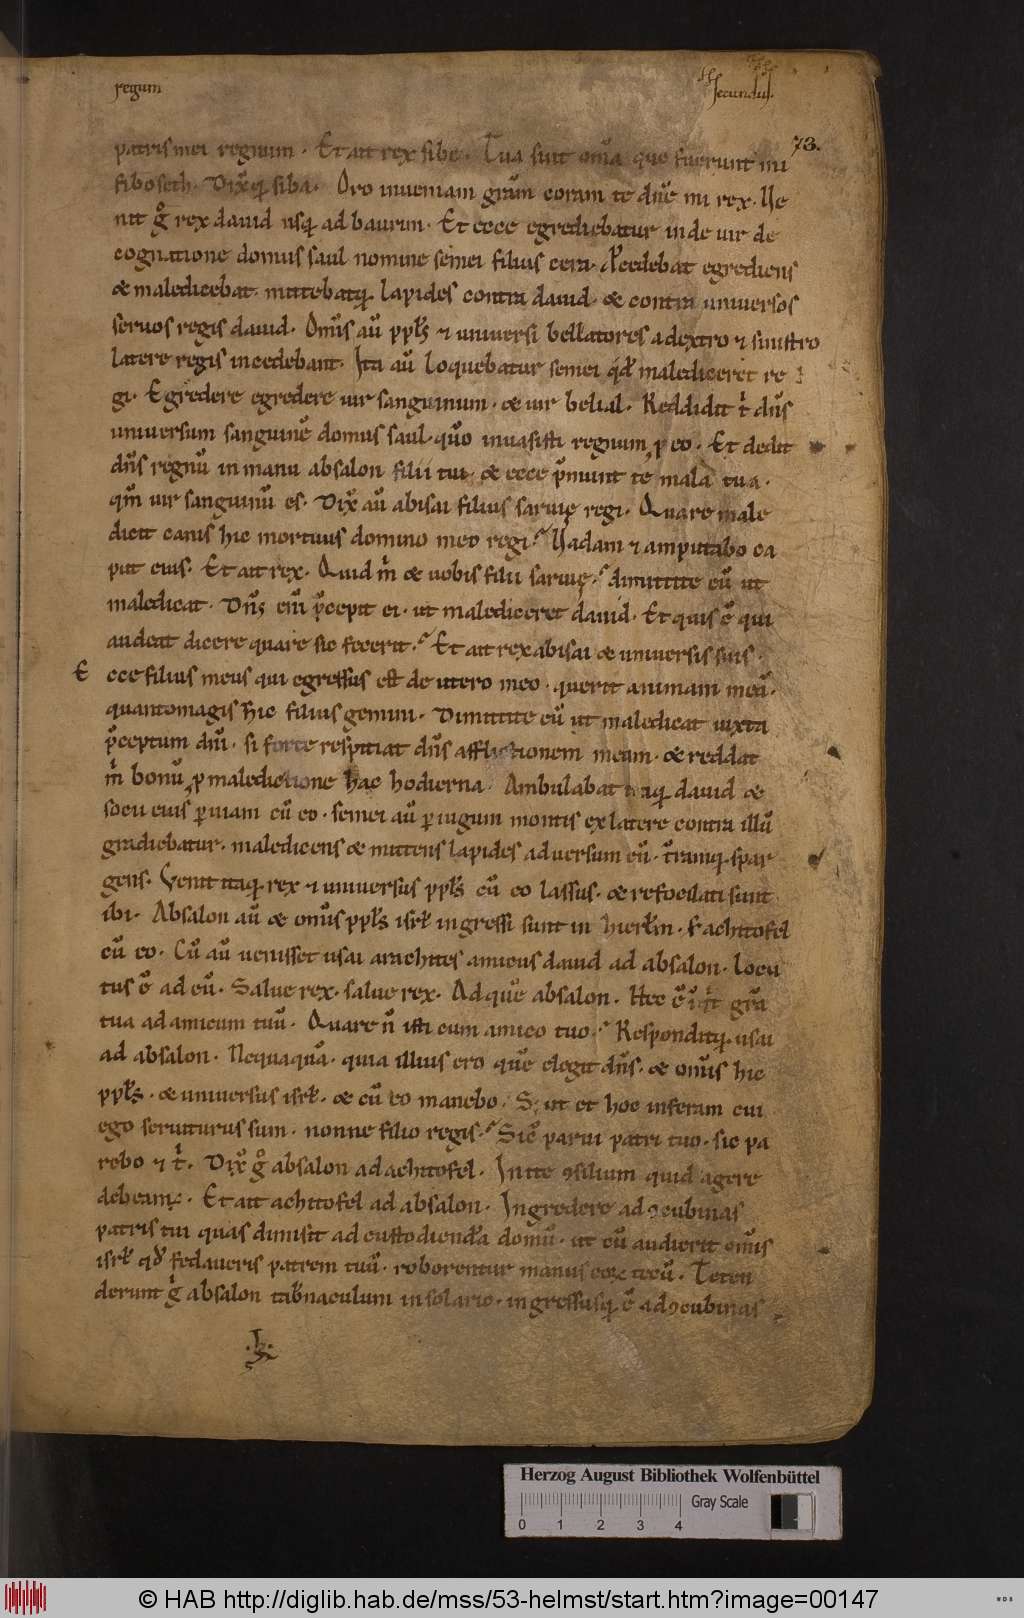 regum secundus.
73.
patris mei regnum. Et ait rex sibe. Tua sunt om̅ia que fuerunt mi
fiboseth. Dix̅q; siba. Oro inueniam gr̅am coram te dn̅e mi rex. Ve
nit g̊ rex dauid usq; ad baurim. Et ecce egrediebatur inde uir de
cognatione domus saul nomine semei filius cera. P̅cedebat egrediens
& maledicebat. mittebatq; lapides contra dauid. & contra uniuersos
seruos regis dauid. Om̅is au̅ ppl̅s ⁊ uniuersi bellatores a dextro ⁊ sinistro
latere regis incedebant. Ita au̅ loquebatur semei qd̅ malediceret re
gi. Egredere egredere uir sanguinum. & uir belial. Reddidit t̅ dn̅s
uniuersum sanguine̅ domus saul. quo̅ inuasisti regnum p eo. Et dedit
dn̅s regnu̅ in manu absalon filii tui. & ecce p̅munt te mala tua.
qm̅ uir sanguinu̅ es. Dix̅ au̅ abisai filius saruię regi. Quare male
dicit canis hic mortuus domino meo regi? Vadam ⁊ amputabo ca
put eius. Et ait rex. Quid m̅ & uobis filii saruię? dimittite eu̅ ut
maledicat. Dn̅s eni̅ p̅cepit ei. ut malediceret dauid. Et quis e̅ qui
audeat dicere quare sic fecerit? Et ait rex abisai & uniuersis suis.
E cce filius meus qui egressus est de utero meo. querit animam mea̅.
quantomagis hic filius gemini. Dimittite eu̅ ut maledicat iuxta
p̅ceptum dni̅. si forte respiciat dn̅s afflictionem meam. & reddat
m̅ bonu̅ p maledictione hac hodierna. Ambulabat itaq; dauid &
socii eius p uiam cu̅ eo. semei au̅ p iugum montis ex latere contra illu̅
gradiebatur. maledicens & mittens lapides aduersum eu̅. t̅ramq; spar
gens. Venit itaq; rex ⁊ uniuersus ppl̅s cu̅ eo lassus. & refocilati sunt
ibi. Absalon au̅ & om̅is ppl̅s isrl̅ ingressi sunt in hierl̅m. & achitofel
cu̅ eo. Cu̅ au̅ uenisset usai arachites amicus dauid ad absalon. locu
tus e̅ ad eu̅. Salue rex. salue rex. Ad que̅ absalon. Hec e̅ inqt̅ gr̅a
tua ad amicum tuu̅. Quare n̅ isti cum amico tuo? Responditq; usai
ad absalon. Nequaqua̅. quia illius ero que̅ elegit dn̅s. & om̅is hic
ppl̅s. & uniuersus isrl̅. & cu̅ eo manebo. S; ut et hoc inferam cui
ego seruiturus sum. nonne filio regis? Sic̅ parui patri tuo. sic pa
rebo ⁊ t̅. Dix̅ g̊ absalon ad achitofel. Inite ꝯsilium quid agere
debeam;. Et ait achitofel ad absalon. Ingredere ad ꝯcubinas
patris tui quas dimisit ad custodienda̅ domu̅. ut cu̅ audierit om̅is
isrl̅ qd̅ fedaueris patrem tuu̅. roborentur manus eoꝝ tecu̅. Teten
derunt g̊ absalon tab̅naculum in solario. ingressusq; e̅ ad ꝯcubinas
Herzog August Bibliothek Wolfenbüttel
0 1 2 3 4 Gray Scale
© HAB http://diglib.hab.de/mss/53-helmst/start.htm?image=00147